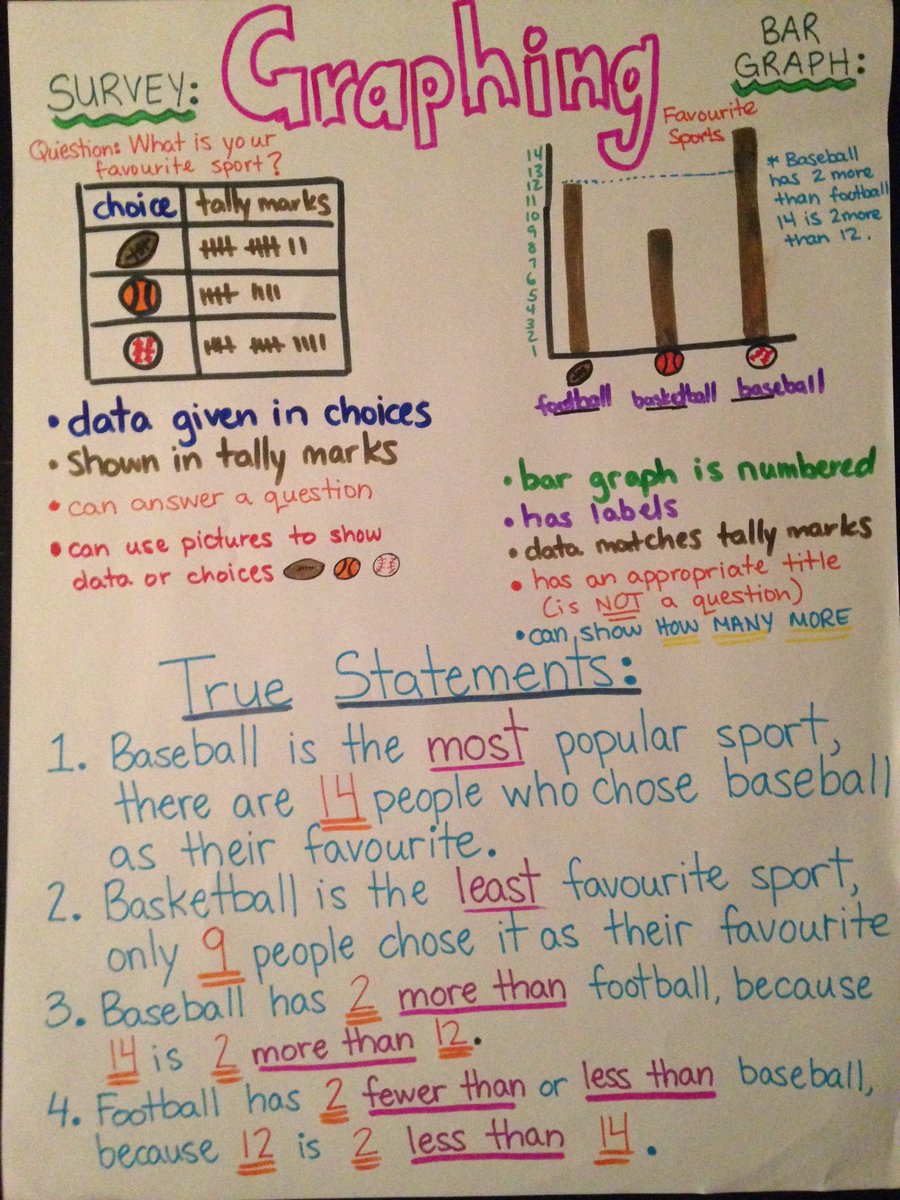 Graphing
SURVEY:
Question: What is your
favourite sport?
choice tally marks
• data given in choices
• shown in tally marks
• can answer a question
• can use pictures to show
data or choices
BAR
GRAPH:
Favourite
Sports
14
13
12
11
10
9
8
7
6
5
4
3
2
1
* Baseball
has 2 more
than football
14 is 2 more
than 12.
football basketball baseball
• bar graph is numbered
• has labels
• data matches tally marks
• has an appropriate title
(is NOT a question)
• can show HOW MANY MORE
True Statements:
1. Baseball is the most popular sport,
there are 14 people who chose baseball
as their favourite.
2. Basketball is the least favourite sport,
only 9 people chose it as their favourite
3. Baseball has 2 more than football, because
14 is 2 more than 12.
4. Football has 2 fewer than or less than baseball,
because 12 is 2 less than 14.